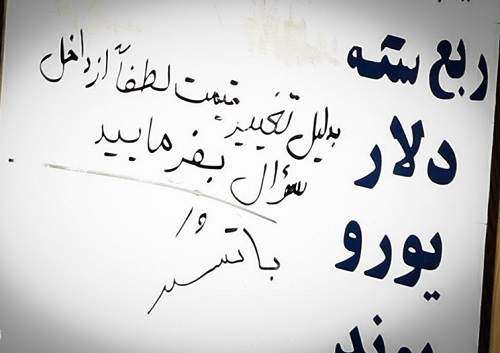 ربع سکه
دلار
یورو
پوند
بدلیل تغییر قیمت لطفاً از داخل
سؤال بفرمایید
با تشکر